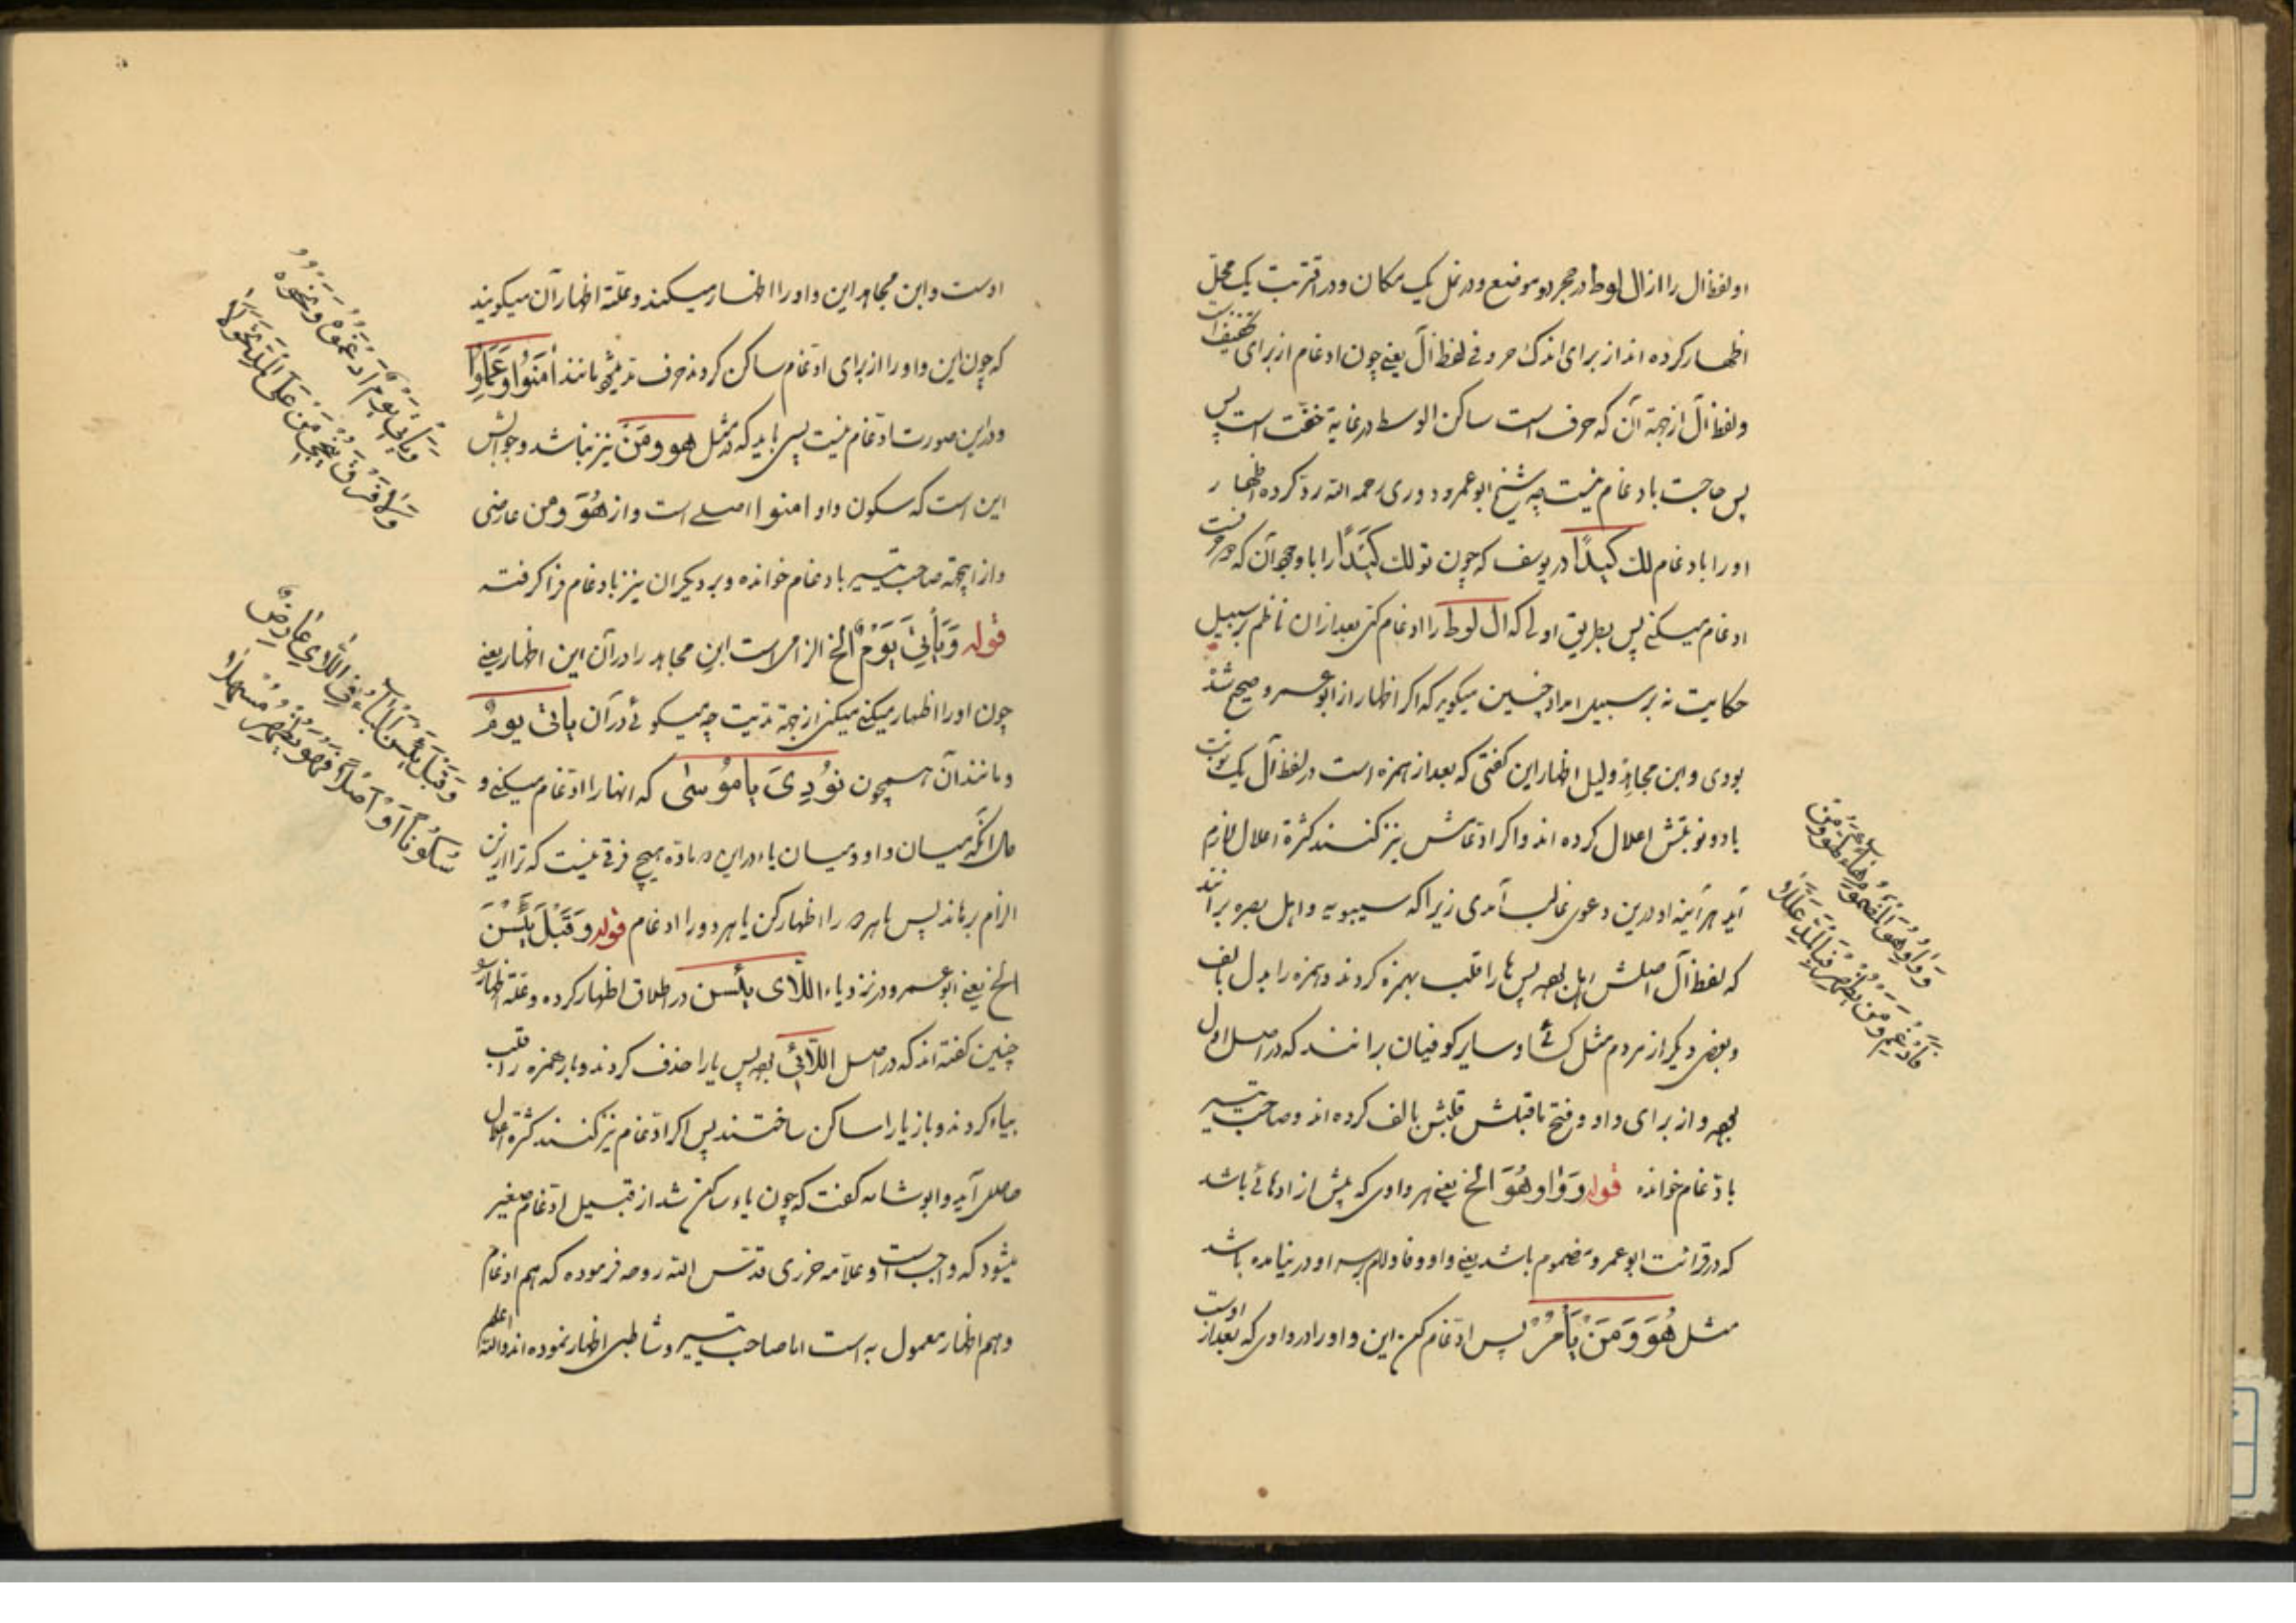 او لفظ ال را از ال لوط در حجر دو موضع و در نمل یک مکان و در اقتربت یک محلّ
اظهار کرده اند از برای اندک حروفی لفظ آل یعنی چون ادغام از برای تخفیف است
ولفظ آل از جهة آن که حرف است ساکن الوسط در غایة خفت است پس
پس حاجت بادغام نیست چه شیخ ابو عمرو دوری رحمه الله رد کرده اظهار
او را بادغام لك كیدًا در یوسف که چون تو لك كَیْدًا را با وجود آن که
ادغام میکنی پس بطریق اولی که ال لوط را ادغام کنی بعد از ان ناظم بر سبیل
حکایت نه بر سبیل امداد چنین میگوید که اگر اظهار از ابو عمرو صحیح شد
بودی و ابن مجاهد دلیل اظهار این گفتی که بعد از همزه است در لفظ آل یک نوبت
یا دو نوبتش اعلال کرده اند و اگر ادغامش نیز کنند کثرة اعلال لازم
آید هرآینه او در این دعوی غالب آمدی زیرا که سیبویه و اهل بصره برانند
که لفظ آل اصلش اهل بوده پس ها را قلب بهمزه کردند و همزه را بدل بالف
و بعضی دیگر از مردم مثل کسائی و سایر کوفیان برانند که در اصل اول
بوده و از برای واو و فتح ماقبلش قلبش بالف کرده اند و صاحب تیسیر
بادغام خوانده قوله وَوَاوُ هُوَ الخ یعنی هر واوی که پیش از او هائی باشد
که در قرائت ابو عمرو مضموم باشد یعنی واو و فا و لام بر سر او در نیامده باشد
مثل هُوَ وَمَنْ یَأْمُرُ پس ادغام کن این واو را در واوی که بعد از اوست
وَوَاوُ هُوَ الْمَضْمُومُ هَاءً كَهُوَ وَمَنْ
فَأَدْغِمْ وَمَنْ يُظْهِرْ فَبِالْمَدِّ عَلَّلَا
اوست و ابن مجاهد این واو را اظهار میکند و علّة اظهار آن میگویند
که چون این واو را از برای ادغام ساکن کردند حرف مد میشود مانند آمَنُوا وَعَمِلُوا
و در این صورت ادغام نیست پس باید که در مثل هو ومَنْ نیز نباشد و جوابش
این است که سکون واو امنوا اصلی است و از هُوَ ومن عارضی
و از اینجهة صاحب تیسیر بادغام خوانده و بر دیگران نیز بادغام فرا گرفته
قوله وَیَأْتِیَ یَوْمٌ الخ الزامی است ابن مجاهد را در آن این اظهار یعنی
چون او را اظهار میکنی میکنی از جهة مدّیت چه میگوئی در آن یأتی یومٌ
و مانند آن همچون نُودِیَ یا مُوسٰی که انها را ادغام میکنی و
حال آنکه میان واو و میان یاء در این ماده هیچ فرقی نیست که ترا از این
الزام برهاند پس یا هر دو را اظهار کن یا هر دو را ادغام قوله وَقَبْلَ یَئِسْنَ
الخ یعنی ابو عمرو در نزد یاء اللّای یئسن در اطلاق اظهار کرده و علّة اظهار
چنین گفته اند که در اصل اللّائی بوده پس یا را حذف کردند و باز همزه را قلب
بیاء کردند و باز یا را ساکن ساختند پس اگر ادغام نیز کنند کثرة اعلال
حاصل آید و ابو شامه گفت که چون یاء ساکن شد از قبیل ادغام صغیر
میشود که واجب است و علّامه جزری قدّس الله روحه فرموده که هم ادغام
و هم اظهار معمول به است اما صاحب تیسیر و شاطبی اظهار نموده اند والله اعلم
وَيَأْتِيَ يَوْمٌ أَدْغَمُوهُ وَنَحْوَهُ
وَلَا فَرْقَ يُنْجِي مَنْ عَلَى الْمَدِّ عَوَّلَا
وَقَبْلَ يَئِسْنَ الْيَاءُ فِي اللَّاءِ عَارِضٌ
سُكُونًا أَوْ أَصْلًا فَهُوَ يُظْهِرُ مُسْهِلَا